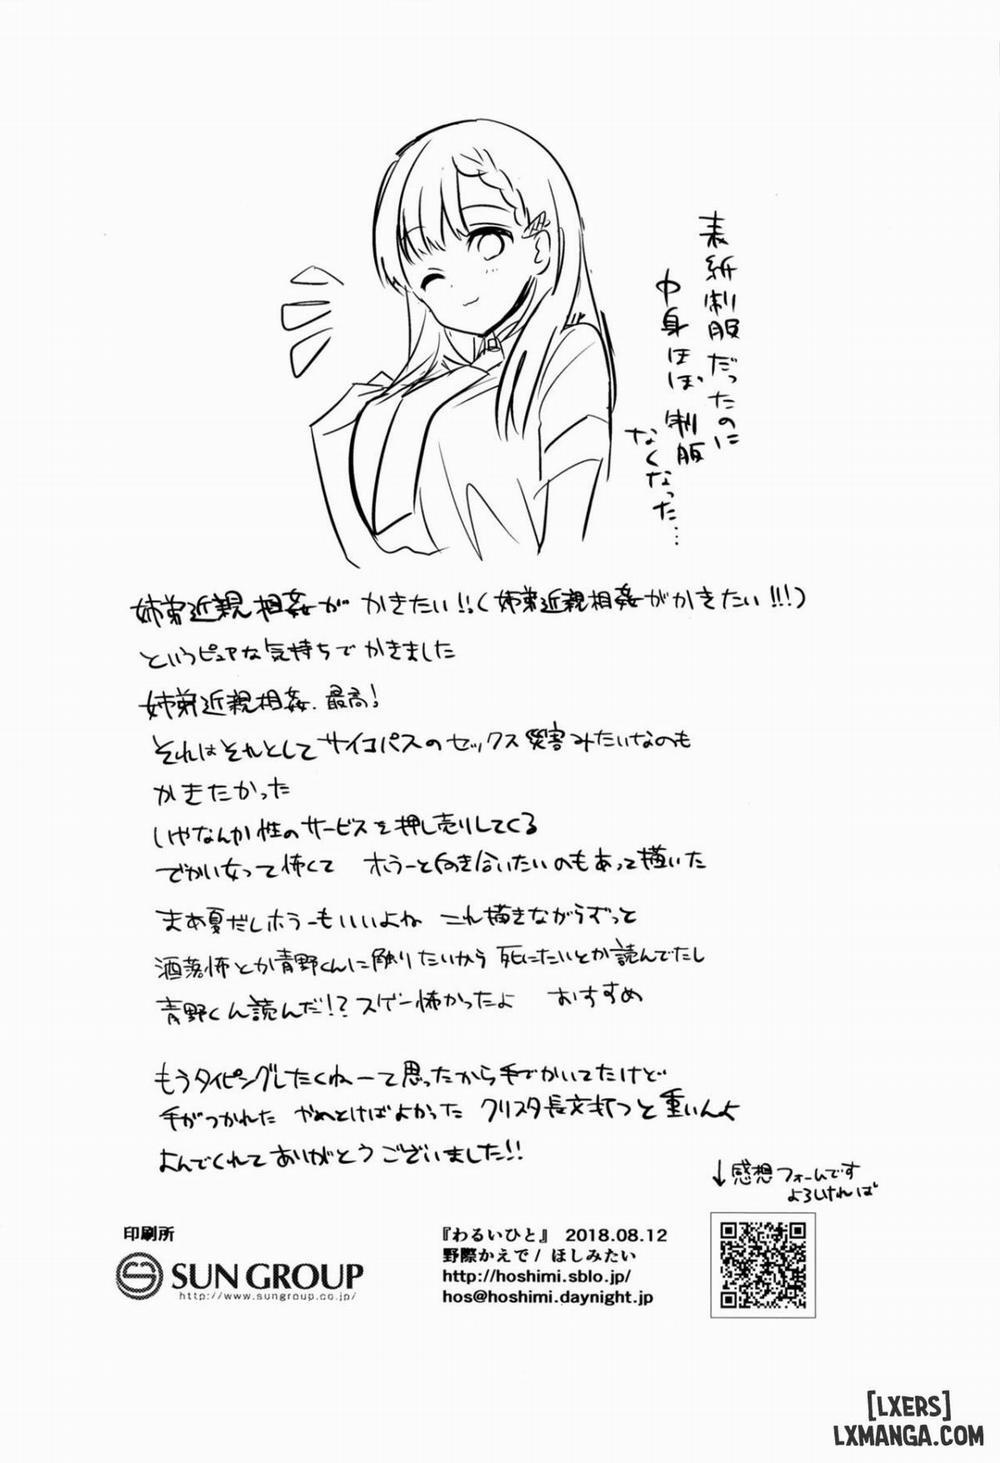 表紙制服だったのに
中身ほぼ制服
なくなった…
姉弟近親相姦が かきたい!!(姉弟近親相姦がかきたい!!!)
というピュアな気持ちでかきました
姉弟近親相姦、最高!
それはそれとしてサイコパスのセックス災害みたいなのも
かきたかった
いやなんか性のサービスを押し売りしてくる
でかい女って怖くて ホラーと向き合いたいのもあって描いた
まあ夏だしホラーもいいよね これ描きながらずっと
洒落怖とか青野くんに触りたいから死にたいとか読んでたし
青野くん読んだ!?スゲー怖かったよ おすすめ
もうタイピングしたくねーて思ったから手でかいてたけど
手がつかれた やめとけばよかった クリスタ長文打つと重いんよ
よんでくれてありがとうございました!!
↓感想フォームです
よろしければ
印刷所
SUN GROUP
http://www.sungroup.co.jp/
『わるいひと』 2018.08.12
野際かえで/ほしみたい
http://hoshimi.sblo.jp/
hos@hoshimi.daynight.jp
[LXERS]
LXMANGA.COM